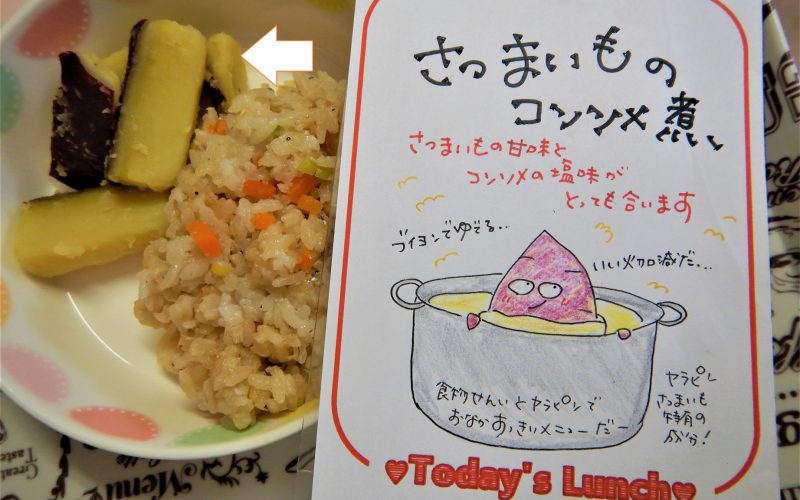 さつまいもの
コンソメ煮
さつまいもの甘味と
コンソメの塩味が
とっても合います
ブイヨンでゆでる…
いい火加減だ…
食物せんいとヤラピンで
おなかすっきりメニューだー
ヤラピン
さつまいも
特有の
成分!
♥Today's Lunch♥
Great
Taste
Menu